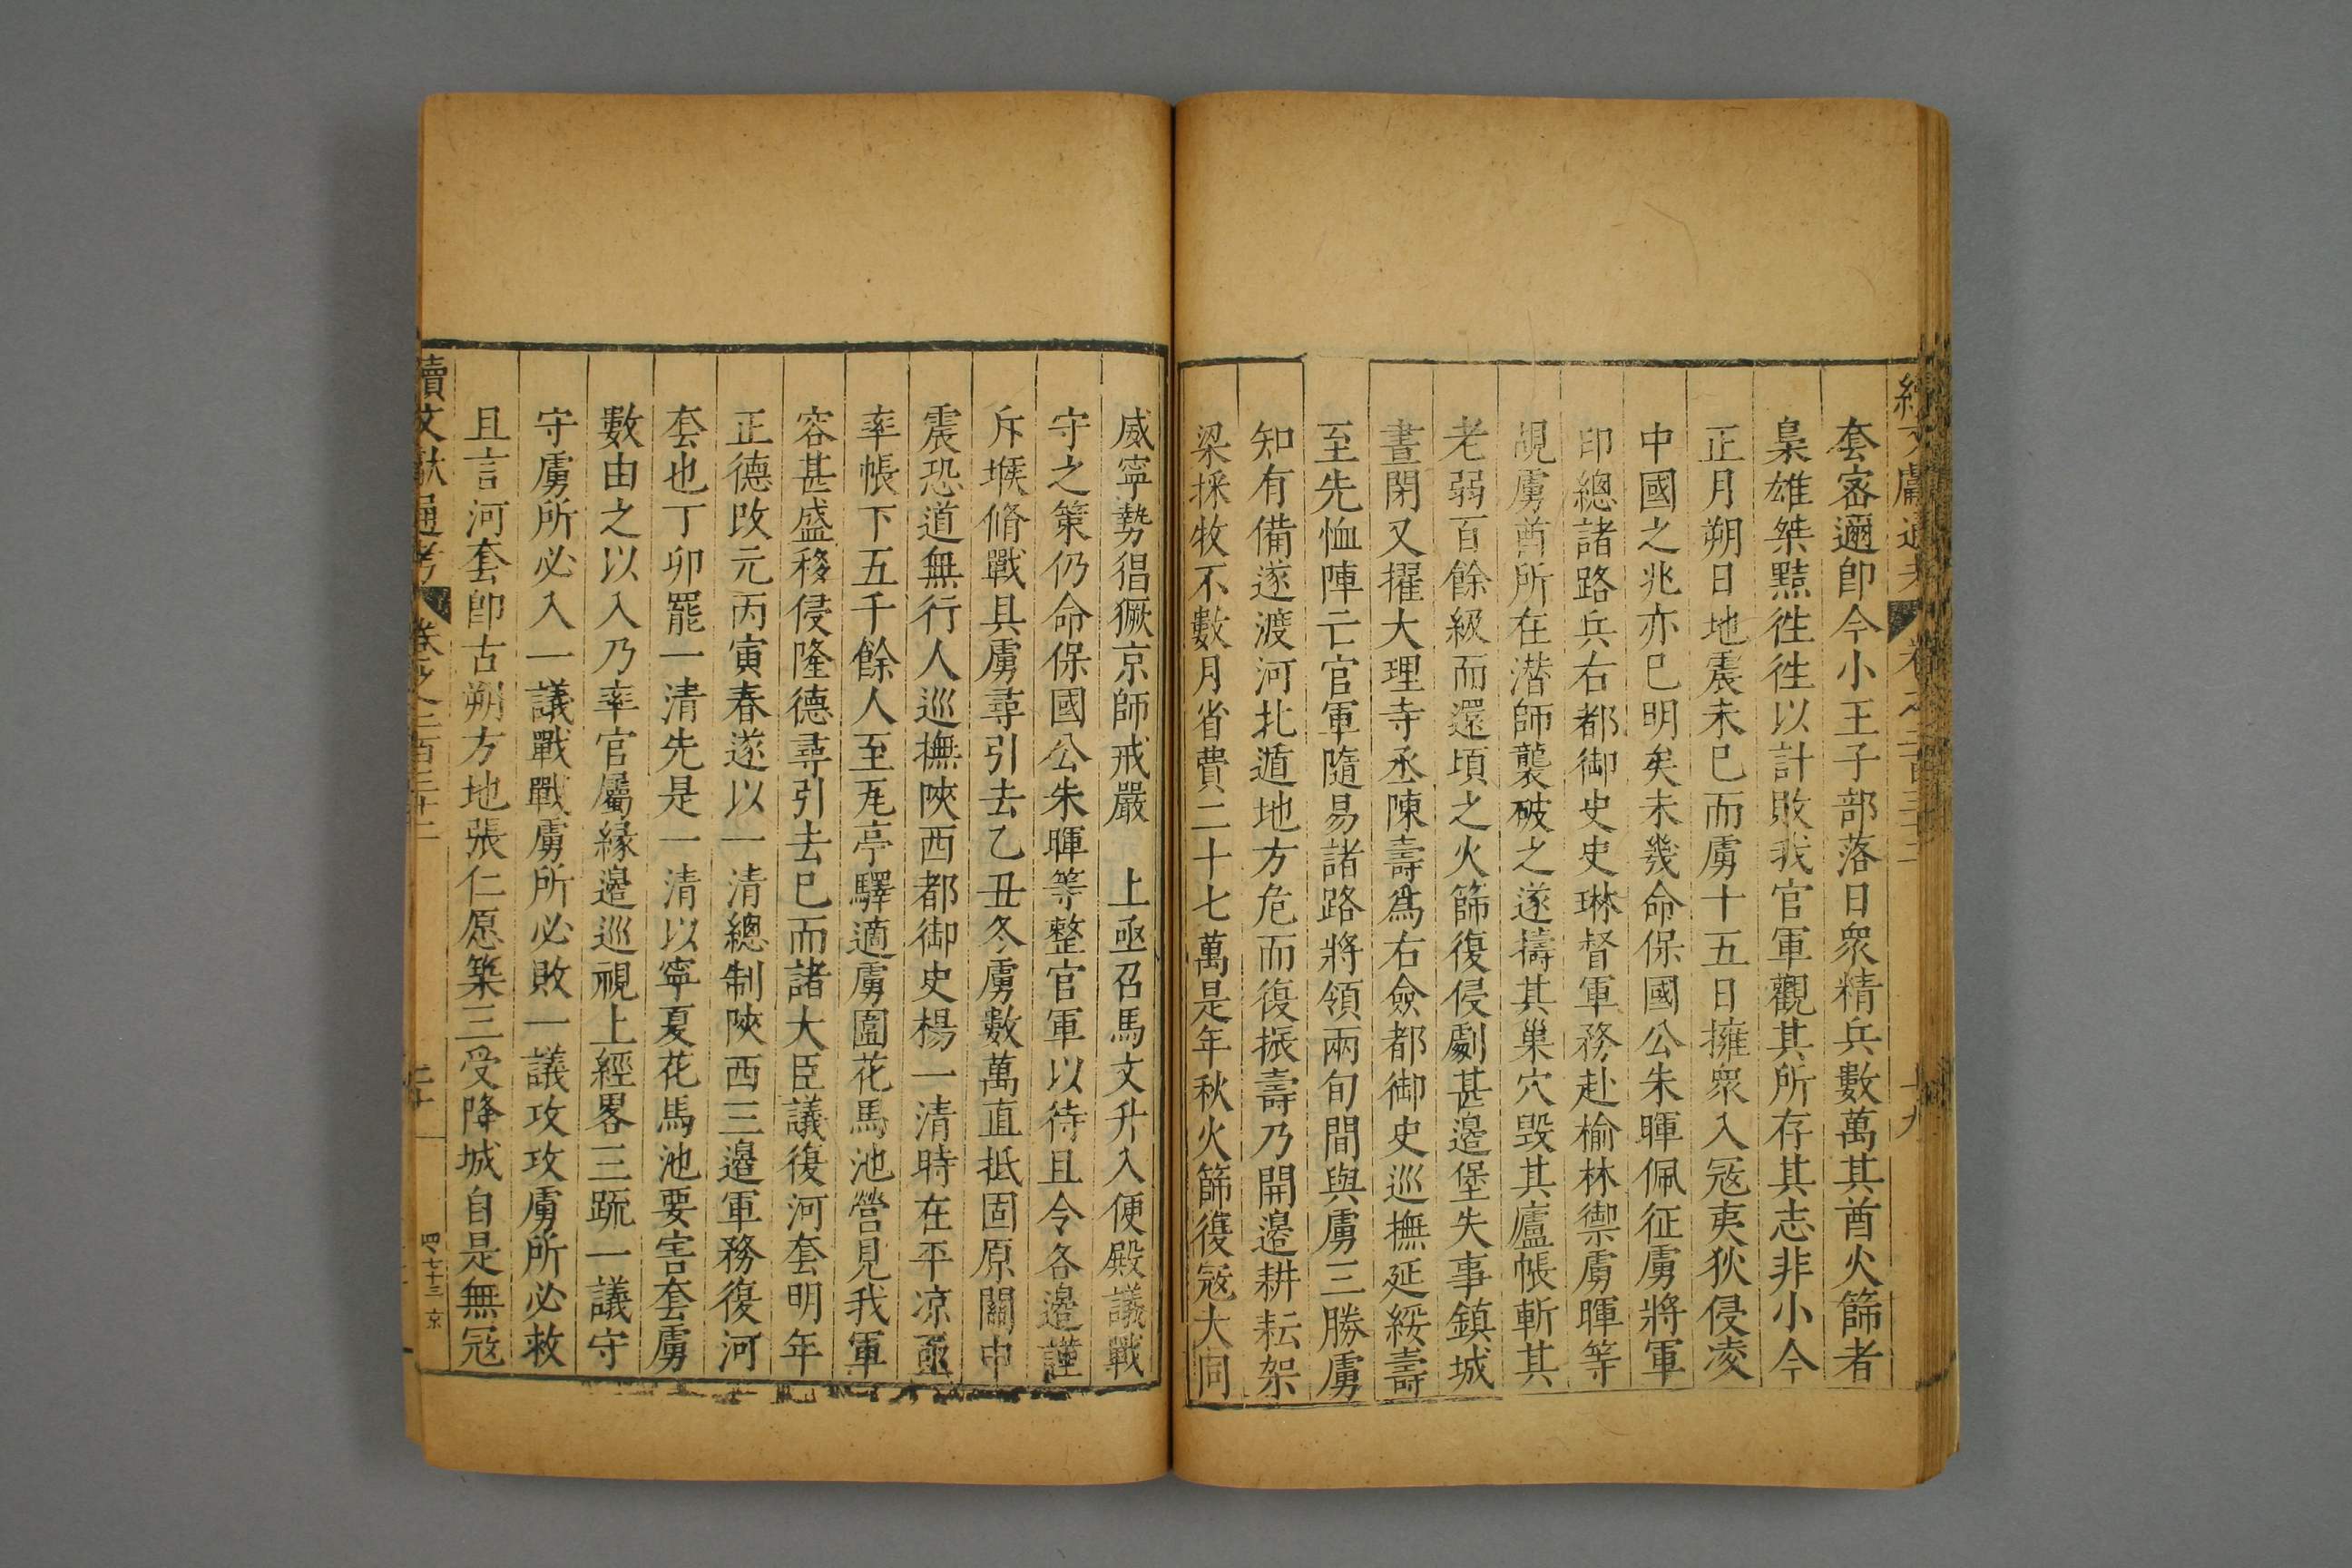 套密邇卽今小王子部落日衆精兵數萬其酋火篩者
梟雄桀黠徃徃以計敗我官軍觀其所存其志非小今
正月朔日地震未巳而虜十五日擁衆入冦夷狄侵凌
中國之兆亦巳明矣未幾命保國公朱暉佩征虜將軍
印總諸路兵右都御史史琳督軍務赴榆林禦虜暉等
覘虜酋所在潜師襲破之遂擣其巢穴毀其廬帳斬其
老弱百餘級而還頃之火篩復侵劇甚邉堡失事鎮城
晝閉又擢大理寺丞陳壽爲右僉都御史巡撫延綏壽
至先恤陣亡官軍隨易諸路將領兩旬間與虜三勝虜
知有備遂渡河北遁地方危而復振壽乃開邉耕耘架
梁採牧不數月省費二十七萬是年秋火篩復冦大同
威寧勢猖獗京師戒嚴 上亟召馬文升入便殿議戰
守之策仍命保國公朱暉等整官軍以待且令各邉謹
斥堠脩戰具虜尋引去乙丑冬虜數萬直抵固原關中
震恐道無行人巡撫陜西都御史楊一清時在平凉亟
率帳下五千餘人至瓦亭驛適虜圍花馬池營見我軍
容甚盛移侵隆德尋引去巳而諸大臣議復河套明年
正德改元丙寅春遂以一清總制陜西三邉軍務復河
套也丁卯罷一清先是一清以寧夏花馬池要害套虜
數由之以入乃率官屬緣邉巡視上經畧三疏一議守
守虜所必入一議戰戰虜所必敗一議攻攻虜所必救
且言河套卽古朔方地張仁愿築三受降城自是無冦
續文獻通考 卷之二百三十二 二十 四七十三 京